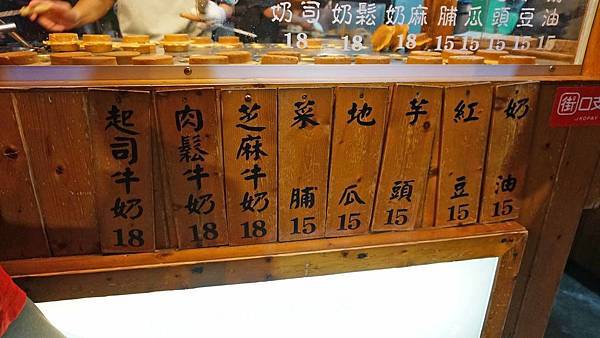 奶司 奶鬆 奶麻 脯 瓜 頭 豆 油
18 18 18 15 15 15 15 15
奶油 15
紅豆 15
芋頭 15
地瓜 15
菜脯 15
芝麻牛奶 18
肉鬆牛奶 18
起司牛奶 18
街口支
JKOPAY